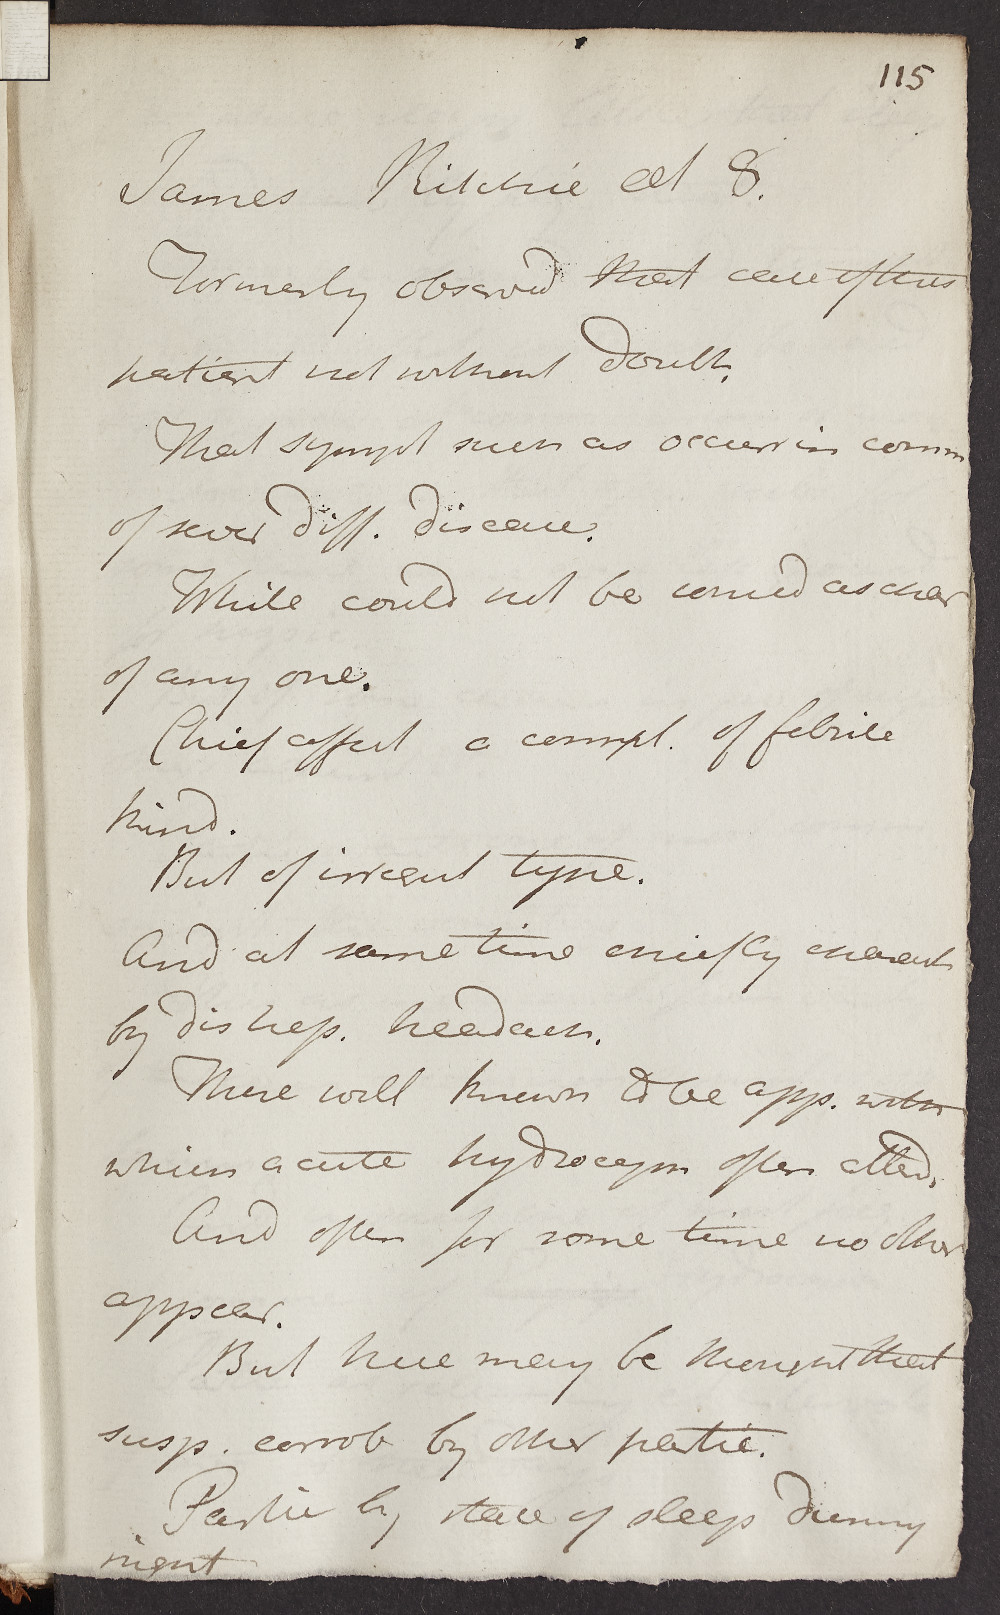 115
James Ritchie aet 8.
Formerly observd that case of this
patient not without doubt.
That sympt such as occur in comm
of sever diff. disease.
While could not be consid as char
of any one.
Chief affect a compl. of febrile
kind.
But of irregul type.
And at same time chiefly charact
by dis hep. headach.
These well known to be app. with
which acute hydroceph often atted.
And often for some time no other
appear.
But here may be thought that
susp. corrob by other partic.
Partic by state of sleep during
night